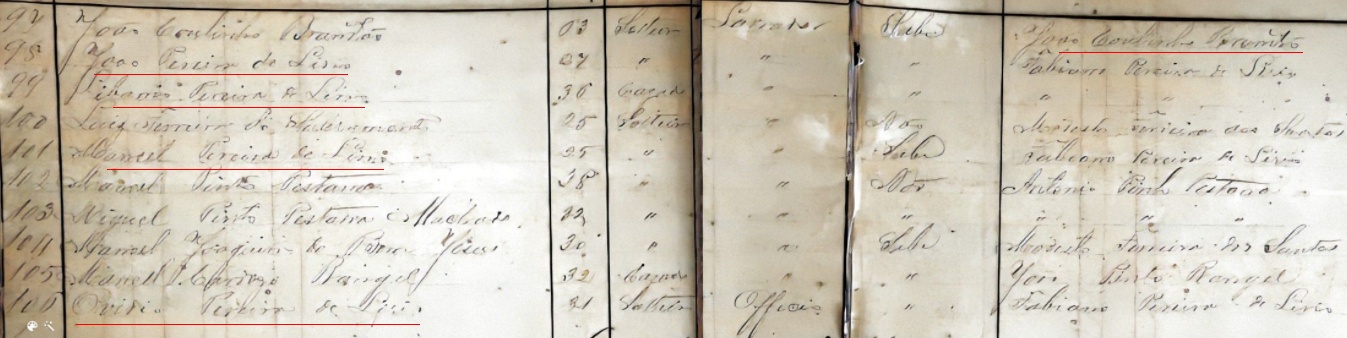 97 João Coutinho Brandão 23 Solteiro Lavrador Sabe João Coutinho Brandão
98 João Pereira de Lirio 27 " " " Fabiano Pereira de Lirio
99 Liberio Pereira de Lirio 36 Casado " " "
100 Luiz Ferreira do Sacramento 25 Solteiro " Não Modesto Ferreira dos Santos
101 Manoel Pereira de Lirio 25 " " Sabe Fabiano Pereira de Lirio
102 Manoel Pinto Pestana 38 " " Não Antonio Pinto Pestana
103 Miguel Pinto Pestana Machado 22 " " " " " "
104 Manoel Joaquim do Bom Jesus 30 " " Sabe Modesto Ferreira dos Santos
105 Manoel Rangel 32 Casado " " Pinto Rangel
106 Ovidio Pereira de Lirio 21 Solteiro Officio " Fabiano Pereira de Lirio